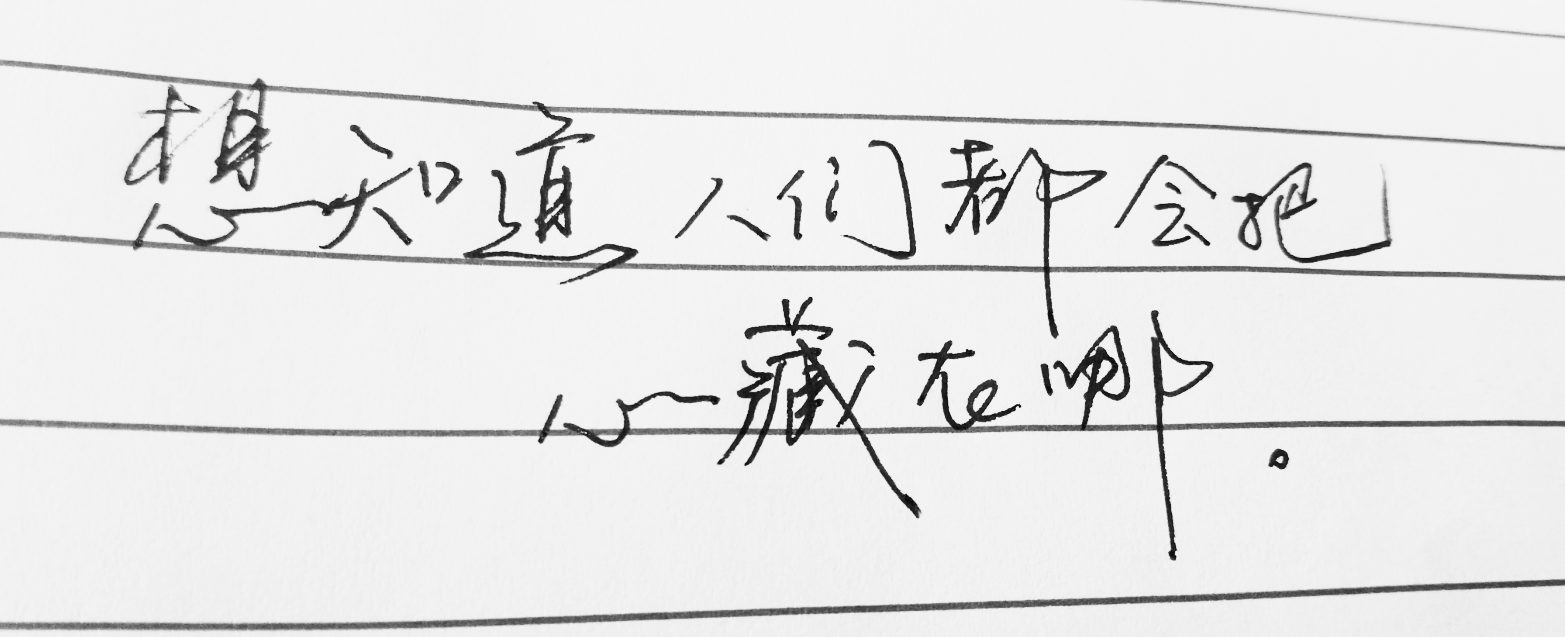 想知道人们都会把
心藏在哪。